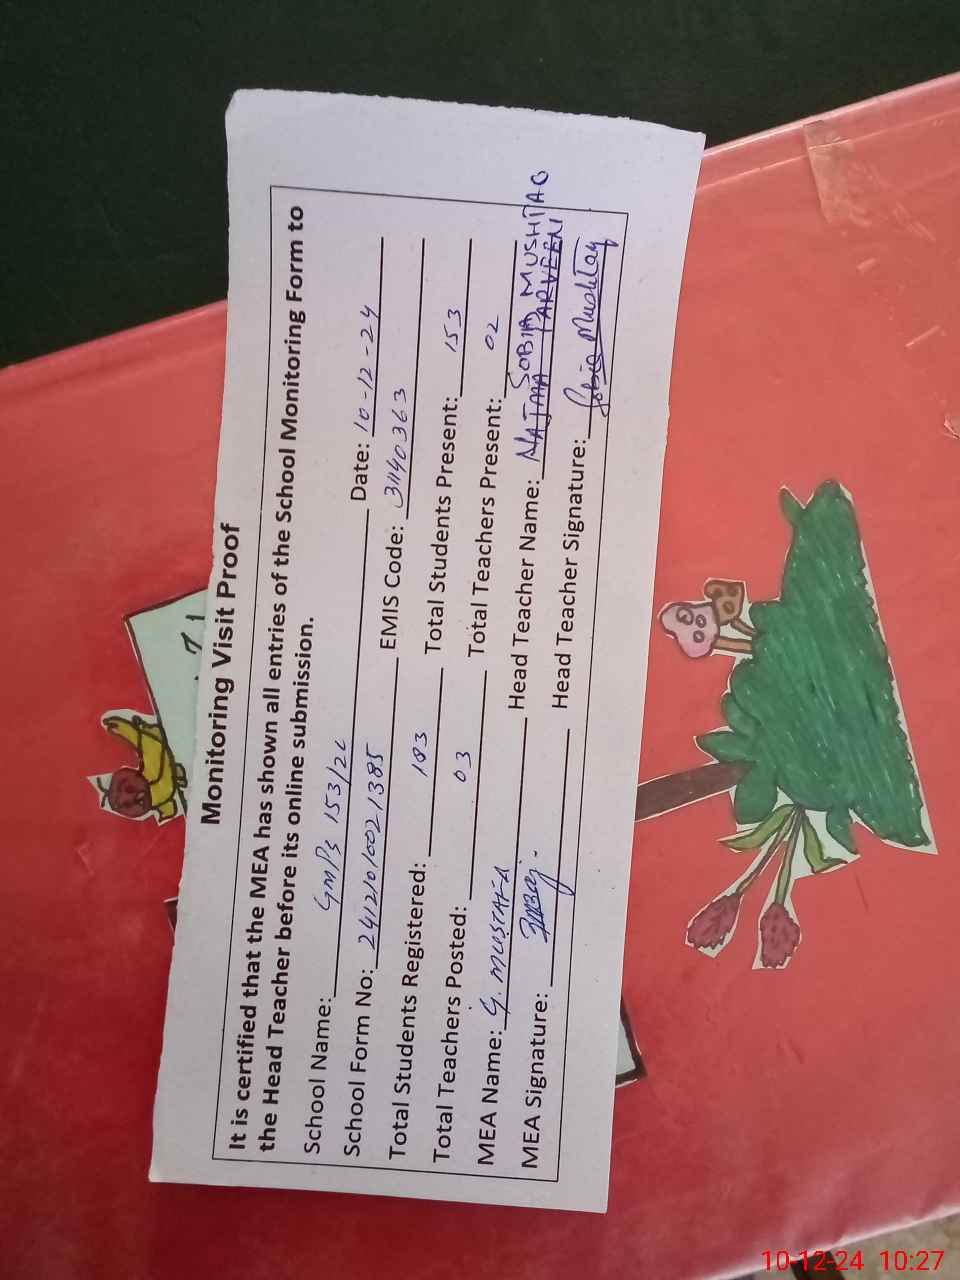 Monitoring Visit Proof
It is certified that the MEA has shown all entries of the School Monitoring Form to
the Head Teacher before its online submission.
School Name: GMPS 153/2L
School Form No: 24121010021385 Date: 10-12-24
Total Students Registered: 183 EMIS Code: 31140363
Total Teachers Posted: 03 Total Students Present: 153
Total Teachers Present: 02
MEA Name: G. MUSTAFA Head Teacher Name: NAJMA PARVEEN SOBIA MUSHTAQ
MEA Signature: Head Teacher Signature: Sobia Mushtaq
71
10-12-24 10:27